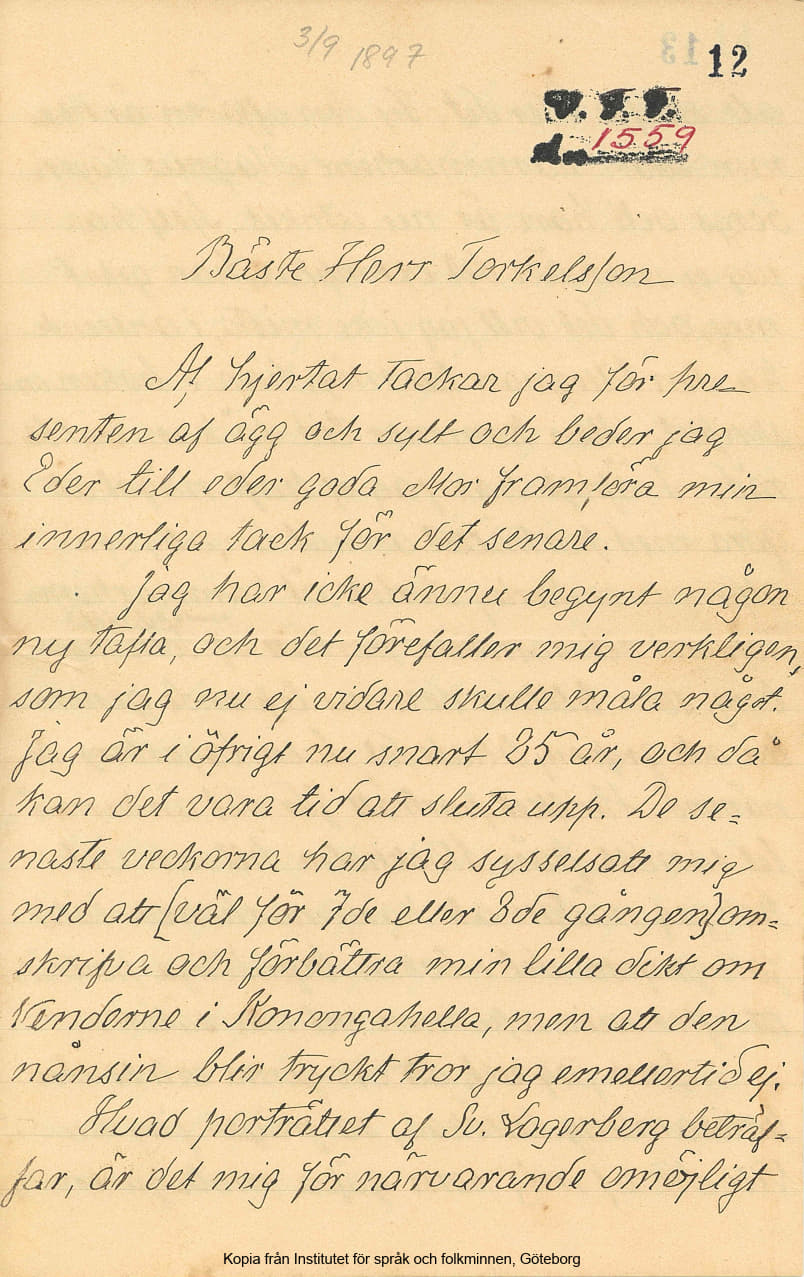 3/9 1897
13
12
V. F. F.
dnr 1559
Bäste Herr Torkelsson
Af hjertat tackar jag för pre-
senten af ägg och sylt och beder jag
Eder till eder goda Mor framföra min
innerliga tack för det senare.
Jag har icke ännu begynt någon
ny tafla, och det förefaller mig verkligen,
som jag nu ej vidare skulle måla något.
Jag är i öfrigt nu snart 85 år, och då
kan det vara tid att sluta upp. De se=
naste veckorna har jag sysselsatt mig
med att [väl för 7de eller 8de gången] om=
skrifva och förbättra min lilla dikt om
Venderne i Konongahella, men att den
nånsin blir tryckt tror jag emellertid ej.
Hvad porträttet af Sv. Lagerberg beträf=
far, är det mig för närvarande omöjligt
Kopia från Institutet för språk och folkminnen, Göteborg